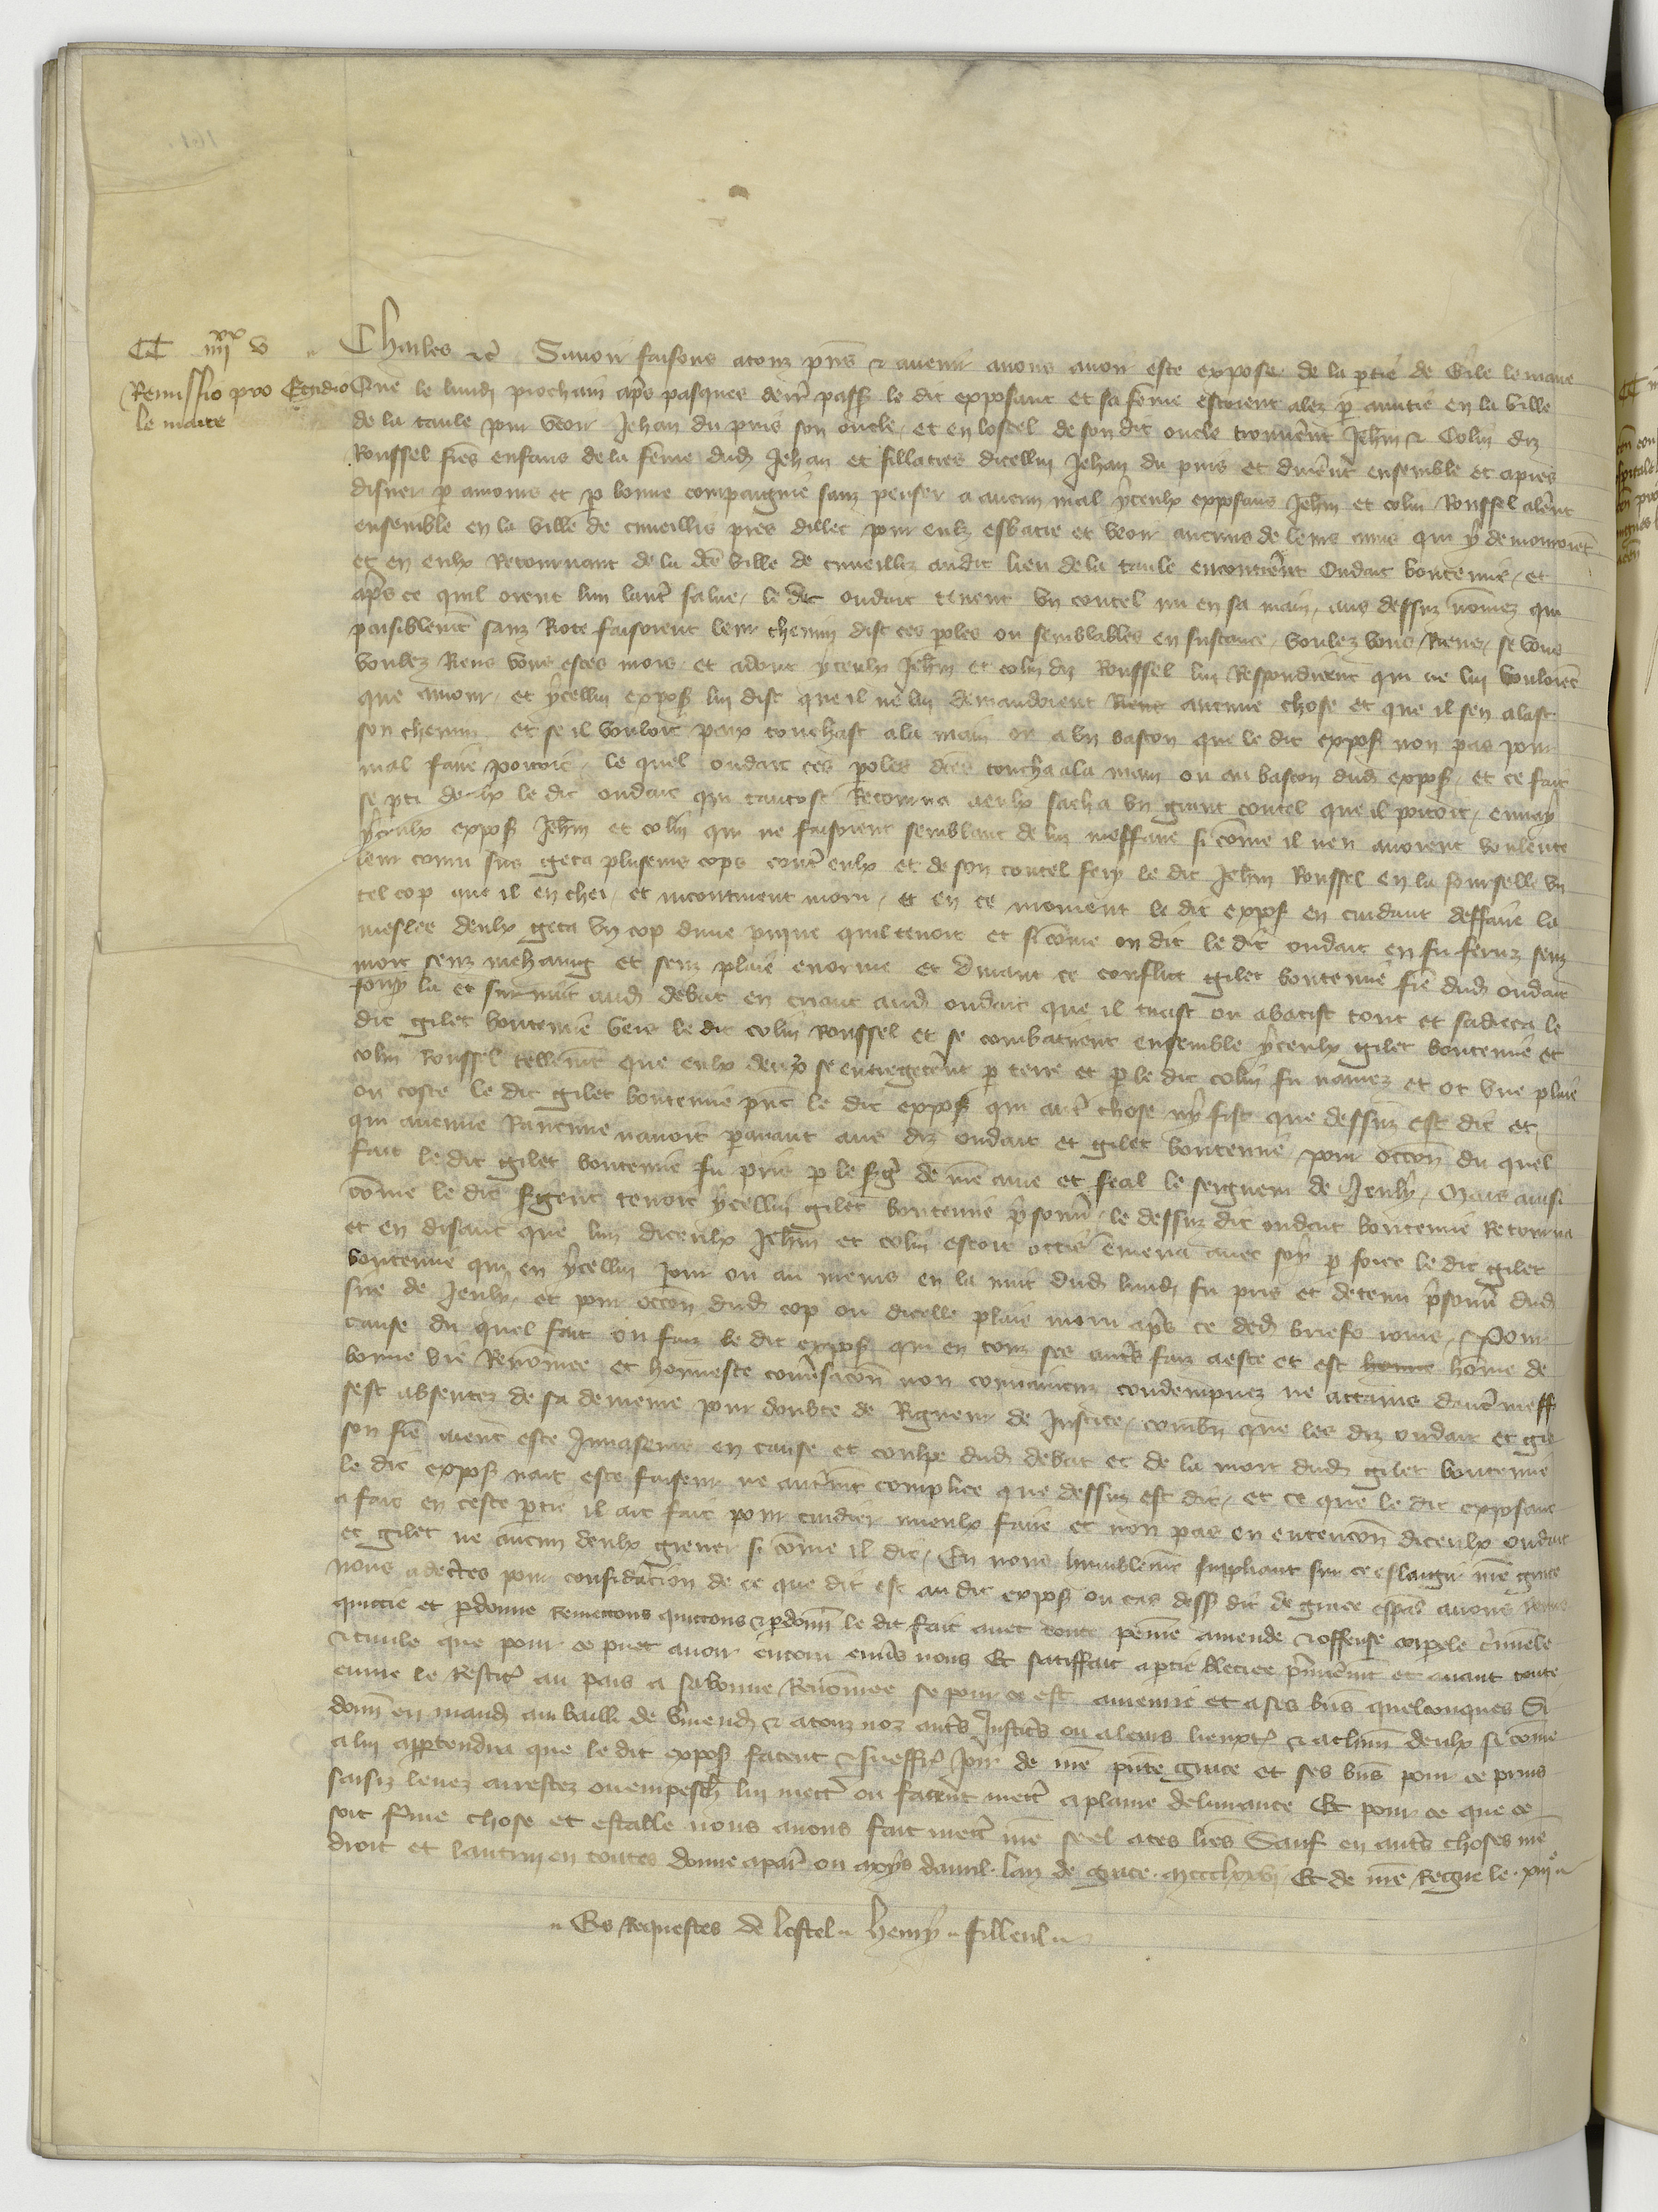 CC iiii xx v
Remissio pro Egidio
le maire
Charles etc̃ Savoir faisons a touz pñs et avenir a nous avoir este expose de la p̃tie de Gile le maire
Que le lundi prochain ap̃s pasques derr̃ pass̃ le dit exposant et sa fẽme estoient alez p amitie en la ville
de la taule pour veoir Jehan du puis son oncle et en lostel de son dit oncle trouvẽrent Jeh̃n et Colin diz
Roussel fr̃es enfans de la fẽme dud Jehan et fillatres dicellui Jehan du puis et disnẽrent ensemble et apres
disner p amours et p bonne compaignie sanz penser a aucun mal yceulx exposans Jeh̃n et colin Roussel alẽrent
ensemble en la ville de cuveillis pres dillec pour eulz esbatre et veoir aucuns de leurs amis qui y demouroiẽt
et en eulx Retournant de la dc̃e ville de cuveillis audit lieu de la taule encontrẽrent Oudart boutevie et
ap̃s ce quil orent lun laut̃ salue le dit oudart tenent un coutel nu en sa main aus dessuz nõmez qui
paisiblemẽt sanz Riote faisoient leur chemin dist ces poles ou semblables en sustance voulez vous Riens se vous
voulez Riens vous estes mors et adont yceulx Jeh̃n et colin diz Roussel lui Respondirent qui ne lui vouloiẽt
que amour et ycellui expos̃ lui dist que il ne lui demandoient Rienz aucune chose et que il sen alast
son chemin et se il vouloit paix touchast a la main ou a un baston que le dit expos̃ non pas pour
mal faire portoit le quel oudart ces poles dc̃es toucha a la main ou au baston dud expos̃ et ce fait
se pti deulx le dit oudart qui tantost Retourna a eulx sacha un grant coutel que il portoit envay
yceulx expos̃ Jeh̃n et colin qui ne faisoient semblant de lui meffaire si cõme il nen avoient voulente
leur couru sus geta pluseurs cops cont̃ eulx et de son coutel fery le dit Jeh̃n Roussel en la fourselle un
tel cop que il en chei et incontinent moru et en ce moment le dit expos̃ en cuidant deffaire la
meslee deulx geta un cop dune pique quil tenoit et si cõme on dit le dit oudart en fu feruz senz
mort senz mehaing et senz plaie enorme et durant ce conflict gilet boutevie fr̃e dud oudart
souy la et survint aud debat en criant aud oudart que il tuast ou abatist tout et sadreca le
dit gilet boutevie vers le dit colin Roussel et se combatirent ensemble yceulx gilet boutevie et
colin Roussel tellemẽt que eulx deux se entregetẽrent p terre et p le dit colin fu navrez et ot une plaie
ou coste le dit gilet boutevie pñt le dit expos̃ qui aut̃ chose ny fist que dessuz est dit et
qui aucune Rancune navoit paravant aus diz oudart et gilet boutevie pour occõn du quel
fait le dit gilet boutevie fu pris p le sr̃g de nr̃e ame et feal le seigneur de Jenly Mais ainsi
cõme le dit sr̃gent tenoit ycellui gilet boutevie p̃sonnr̃ le dessuz dit oudart boutevie Retourna
et en disant que lun diceulx Jeh̃n et colin estoit occis emena avec soy p force le dit gilet
boutevie qui en ycellui jour ou au meins en la nuit dud lundi fu pris et detenu p̃sonnr̃ dud
sire de Jenly et pour occõn dud cop ou dicelle plaie moru ap̃s ce dedens briefs jours Pour
cause du quel fait ou faiz le dit expos̃ qui en touz ses aut̃s faiz a este et est home hõme de
bonne vie Renõmee et honneste convẽrsacõn non convaincuz condempnez ne attains daut̃ meff
sest absentez de sa demeure pour doubte de Rigueur de Justice combñ que les diz oudart et gil
son fr̃e aient este Invaseurs en cause et coulpe dud debat et de la mort dud gilet boutevie
le dit expos̃ nait este faiseur ne autremẽt complice que dessuz est dit et ce que le dit exposant
a fait en ceste p̃tie il ait fait pour cuidier mieulx faire et non pas en entencõn diceulx oudart
et gilet ne aucun deulx grever si cõme il dit En nous humblemẽt suppliant sur ce eslargir nr̃e grace
Nous adec̃tes pour considẽracion de ce que dit est au dit expos̃ ou cas dess̃ dit de grace esp̃al avons Remis
quittie et pdonne Remettons quittons et pdonn̄ le dit fait avec toute peine amende et offense corporele c̃minele
et civile que pour ce puet avoir encoru env̂s nous Et satiffait a ptie bleciee p̃mierem̃t et avant toute
euvre le Restit̃ au pais a sa bonne Renõmee se pour ce est amenrie et a ses biens quelconques Si
donn̄ en mand au bailli de v̂mend et a touz noz aut̃s Justic̃s ou a leurs lieux t̃ et a chun deulx si cõme
a lui appartendra que le dit expos̃ facent et sueffr̃ joir de nr̃e pñte grace et ses bñs pour ce prins
saisiz levez arrestez ou empesch̃ lui mett̃ ou facent mett̃ a plaine delivrance Et pour ce que ce
soit ferme chose et estable nous avons fait mett̃ nr̃e seel a ces lr̃es Sauf en aut̃s choses nr̃e
droit et lautruy en toutes donne a paris ou moys davril lan de grace mccclxxvi Et de nr̃e Regne le xiiie
Es Requestes de lostel Henry Filleul